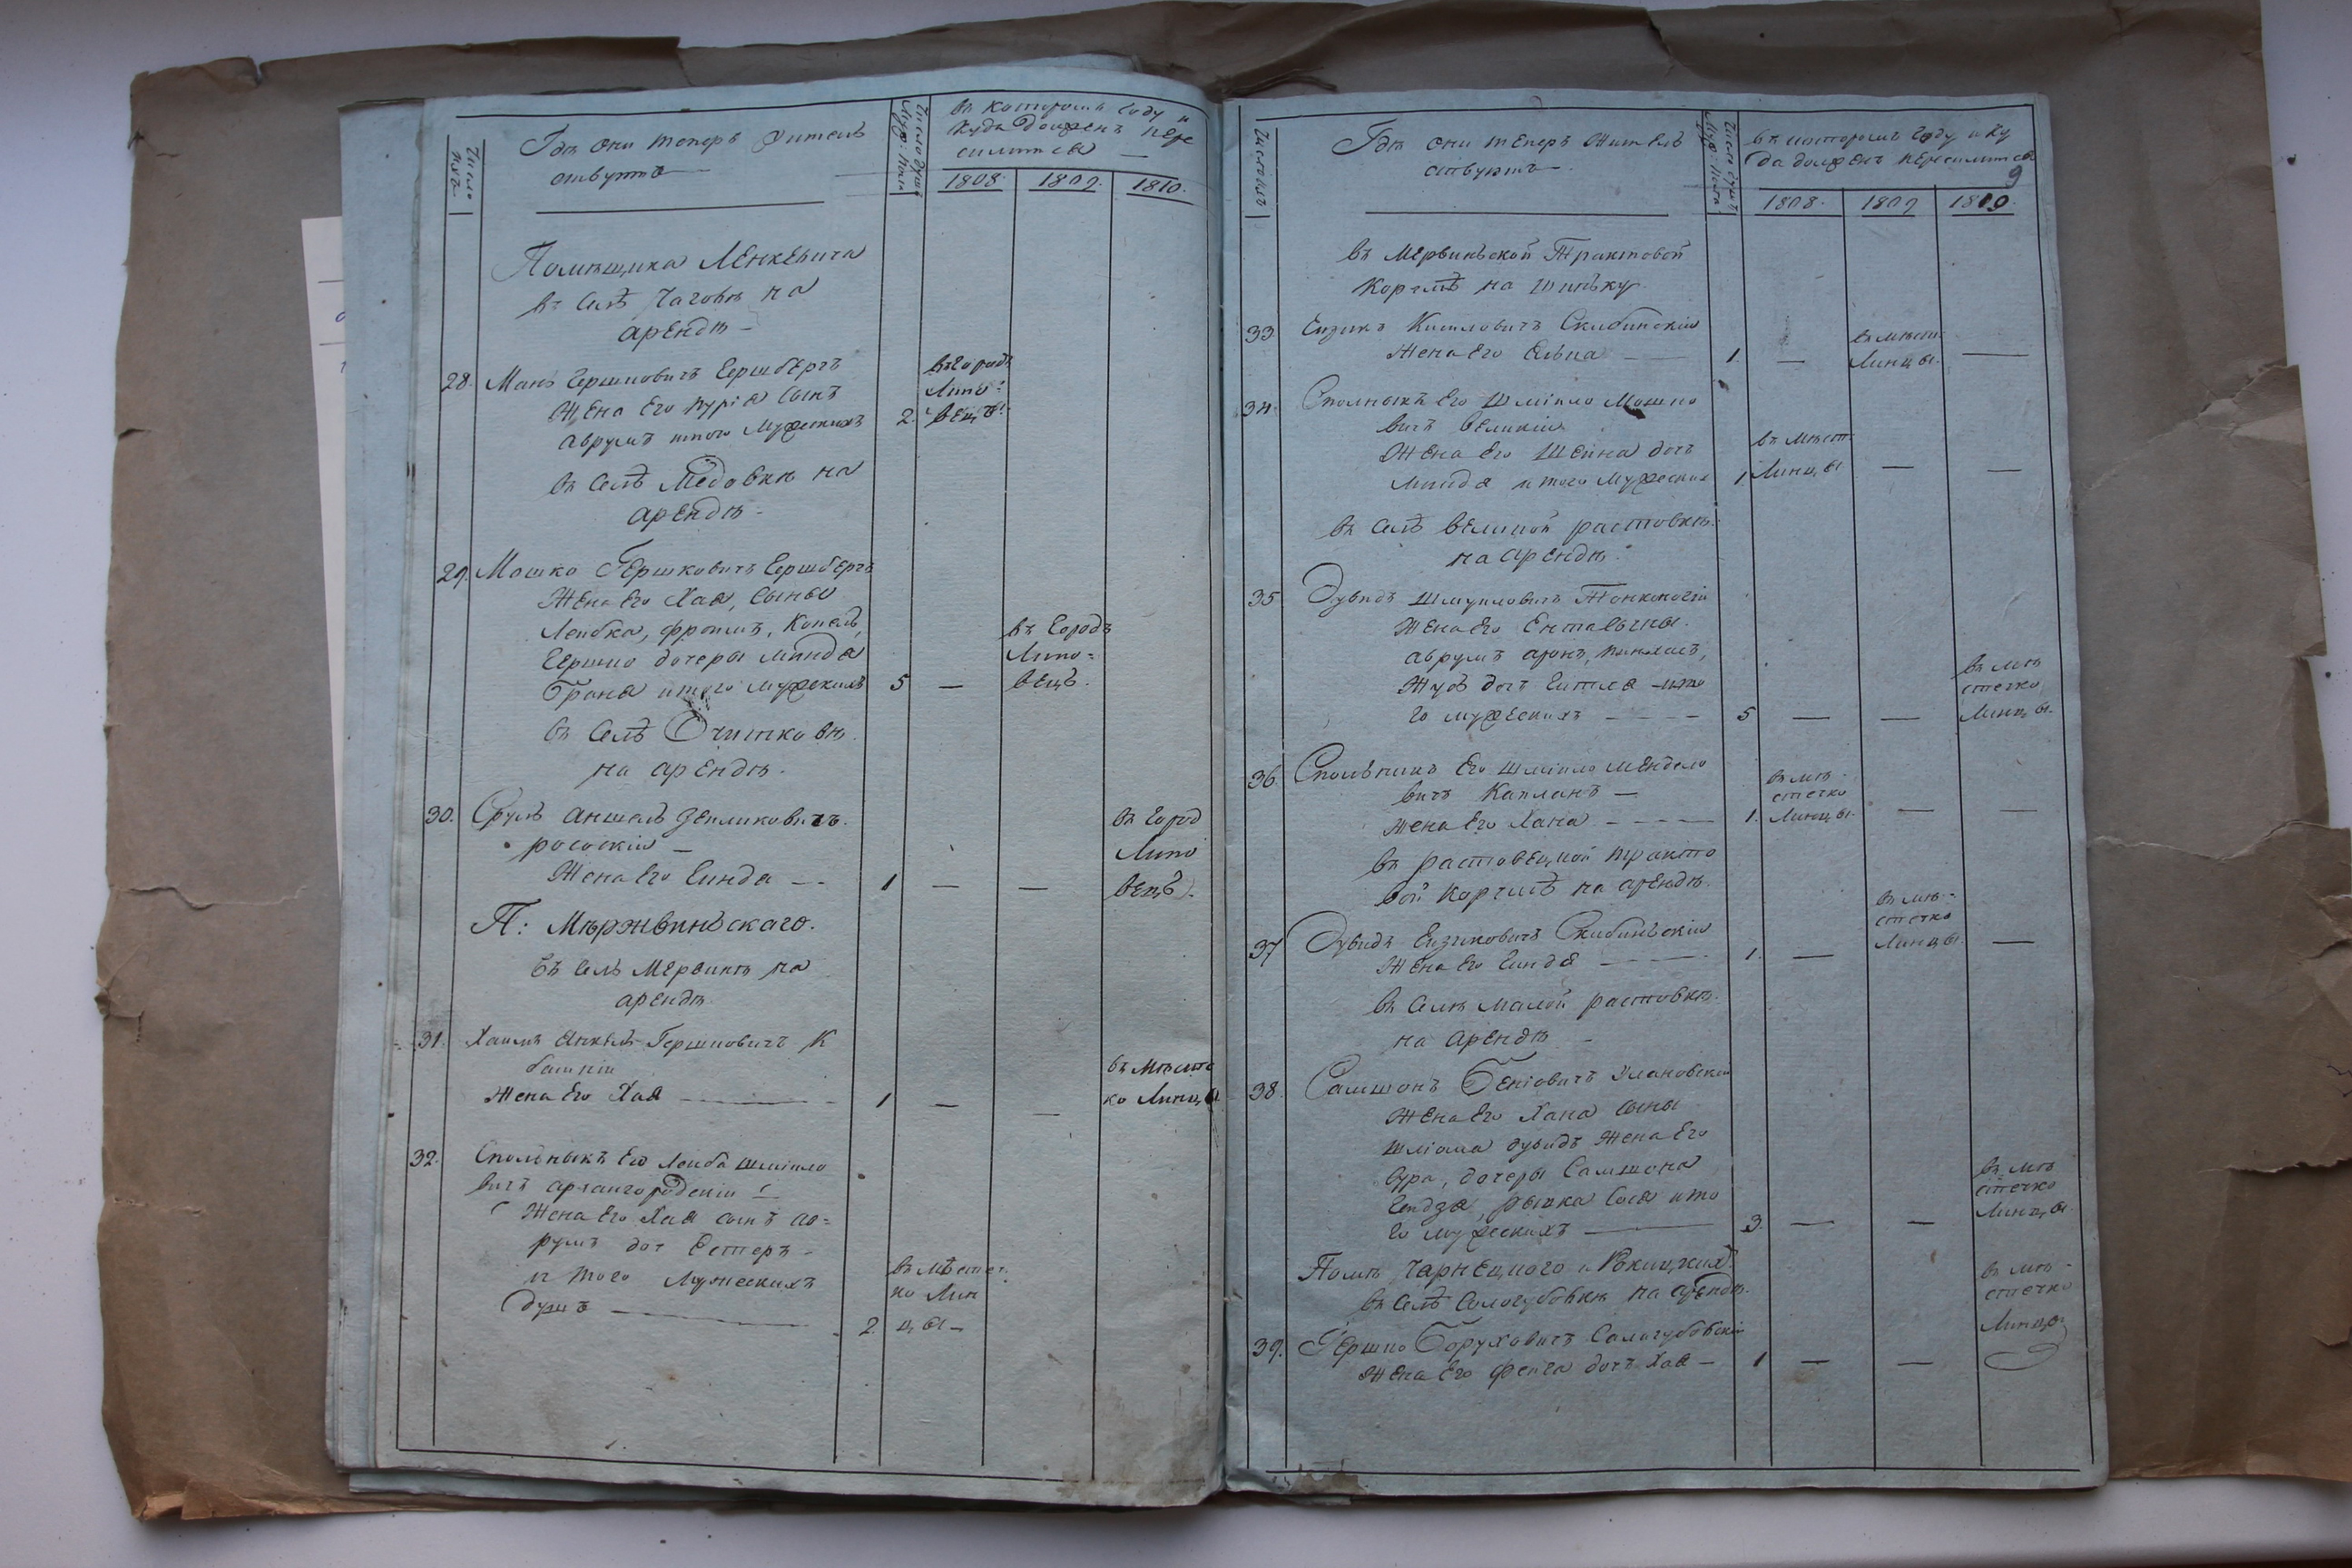 Число
ихъ
Гдѣ они теперь жител
ствуютъ
Число душъ
Муж: пола
въ которомъ году и
куда долженъ пере
силится
1808. 1809. 1810.
Помѣщика Ленкевича
въ селѣ Чаговѣ на
арендѣ
28. Мань Гершковичъ Гершбергъ
Жена Его Хурія сынъ
Аврумъ итого Мужескихъ 2.
въ городъ
Липо=
вецъ.
въ селѣ Медовкѣ на
арендѣ
29. Мошко Гершковичъ Гершбергъ
Жена Его Хая, сыны
Лейбка, Фроимъ, Копель,
Гершко дочеры Минда
Брана итого мужескихъ 5 —
въ городъ
Липо=
вецъ.
въ селѣ Очитковѣ
на арендѣ.
30. Сруль Аншель Зейликовичъ
рососкій —
Жена Его Гинда — 1 — —
въ город
Липо
вецъ.
П: Мѣржвиньскаго.
въ селѣ Мервинѣ на
арендѣ
31. Хаимъ Янкель Гершковичъ К
башкій
Жена Его Хая — 1 — —
въ мѣсте
ко Линцы
32. Спольныкъ Его Лейба Шміило
вичъ
Жена Его Хая сынъ Ав=
румъ доч Естеръ
итого Мужескихъ
душъ — 2.
въ мѣстеч
ко Лин
цы —
Число ихъ
Гдѣ они теперь жителъ
ствуютъ
Число душъ
Муж: пола
въ которомъ году и ку
да долженъ переселится
9
1808. 1809 1810.
въ Мервиньской Трактовой
Корчмѣ на шинку
33 Ейзикъ Кисиловичъ Скибинскій
Жена Его Елька — 1. —
въ мѣст:
Линцы. —
34. Спольныкъ Его Шміило Мошко
вичъ Великій
Жена Его Шейна дочъ
Минда итого Мужеских 1
въ мѣст:
Линцы — —
въ селѣ Великой растовкѣ
на арендѣ.
35 Дувидъ Шмуиловичъ Тонконогій
Жена Его Ента сыны.
Аврумъ аронъ, пинхасъ,
Жусъ доч Гитля ито
го мужескихъ — 5 — —
въ мѣ
стечко
Линцы.
36. Спольникъ Его Шміило Мендело
вичъ Капланъ —
Жена Его Хана — 1.
въ мѣ
стечко
Линцы. — —
въ растовецкой тракто
вой корчмѣ на арендѣ.
37 Дувидъ Ейзиковичъ Скибиньскій
Жена Его Гиндя — 1. —
въ мѣ=
стечко
Линцы. —
въ селѣ малой растовкѣ
на арендѣ
38. Самшонъ Беніовичъ Улановскій
Жена Его Хана сыны
Шліома дувидъ Жена Его
Сура, дочеры Самшона
рывка Сося ито
го мужескихъ — 3. — —
въ мѣ
стечко
Линцы.
Помѣ Чарнецкого и Рокицкихъ
въ селѣ Сологубовкѣ на арендѣ.
39. Гершко Боруховичъ Сологубовскій
Жена Его Фейга дочъ Хая — 1 — —
въ мѣ=
стечко
Линцы